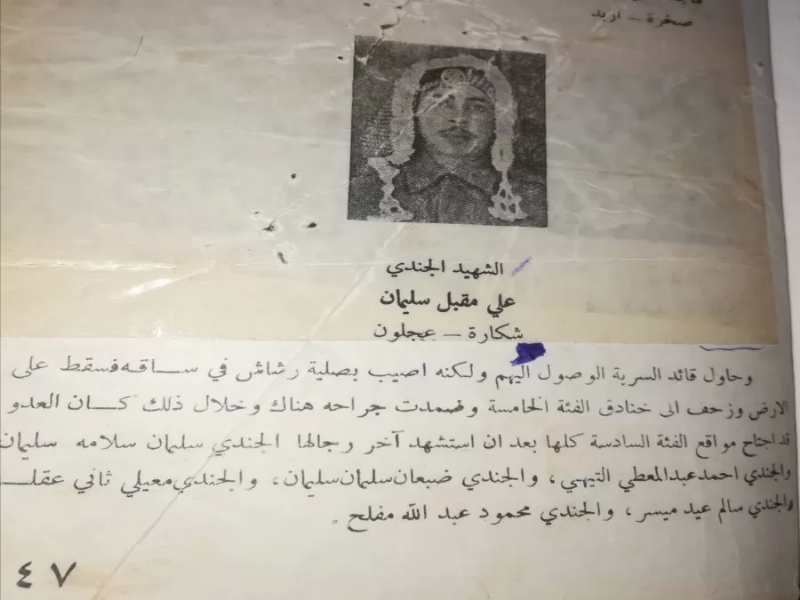 صخرة – اربد
الشهيد الجندي
علي مقبل سليمان
شكارة – عجلون
وحاول قائد السرية الوصول اليهم ولكنه اصيب بصلية رشاش في ســاقه فسقط على
الارض وزحف الى خنادق الفئة الخامسة وضمدت جراحه هناك وخلال ذلك كــان العدو
قد اجتاح مواقع الفئة السادسة كلها بعد ان استشهد آخر رجالها الجندي سليمان سلامه سليمان
والجندي احمد عبد المعطي التيهي، والجندي ضبعان سلمان سليمان، والجندي معيلي ثاني عقلــ
والجندي سالم عيد ميسر، والجندي محمود عبد الله مفلح .
٤٧